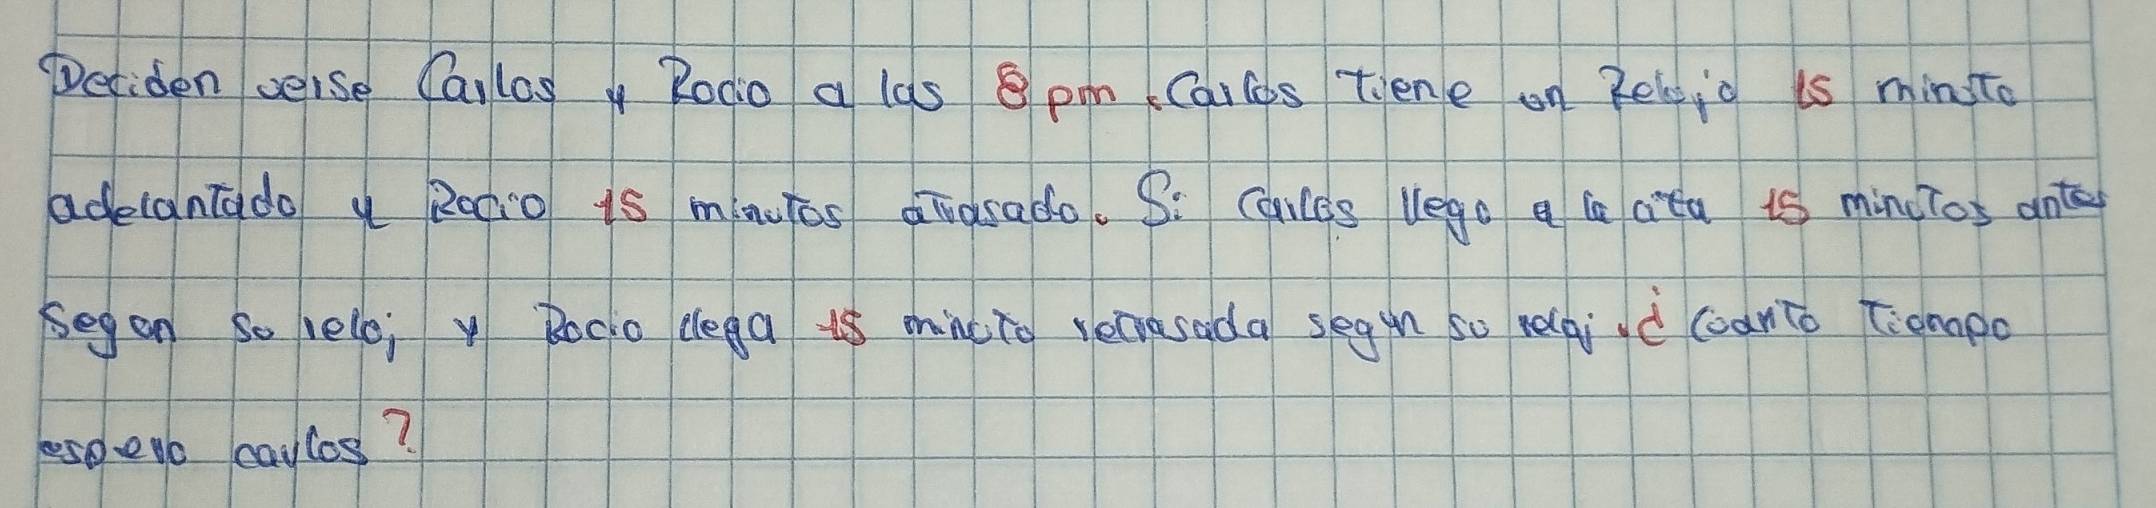 Deciden verse Carlos y Rocio a las 8 pm. Carlos tiene un Reloj d 15 minuto
adelantado y Rocio 15 minutos atrasado. Si Carlos llego a la cita 15 minutos antes
segun su reloj y Rocio llega 15 minuto retrasada segun su reloj. ¿ Cuanto tiempo
espero carlos?